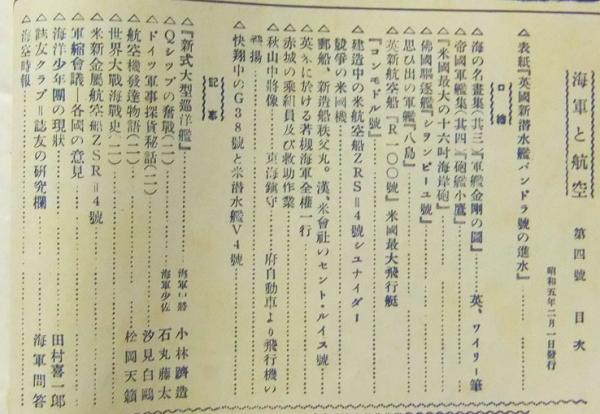 海軍と航空 第四號 目次
昭和五年二月一日發行
△表紙『英國新潜水艦パンドラ號の進水』
口繪
△海の名畫集(其三)『軍艦金剛の圖』……英、ワイリー筆
△帝國軍艦集(其四)『砲艦小鷹』
△『米國最大の十六吋海岸砲』
△佛國驅逐艦『シヲンピーユ號』
△思ひ出の軍艦『八島』
△英新航空船『R一〇〇號』米國最大飛行艇
『コンモドル號』
△建造中の米航空船ZRS=4號シユナイダー
競爭の米國機
△郵船、新造船秩父丸。漢、米會社のセント・ルイス號
△英米に於ける若槻海軍全權一行
△赤城の乘組員及び救助作業
△秋山中將像 東海鎭守府自動車より飛行機の
飛揚
△快翔中のG38號と米潜水艦V4號
記事
△『新式大型巡洋艦』……海軍少將 小林躋造
△Qシップの奮戰(二)……海軍少佐 石丸藤太
△ドイツ軍事探貨秘話(二)……汐見白鷗
△航空機發達物語(二)……松岡天籟
△世界大戰海戰史(二)
△米新金屬航空船ZSR=4號
△軍縮會議――各國の意見
△海洋少年團の現狀……田村喜一郎
△誌友クラブ=誌友の研究欄
△海空時報……海軍問答